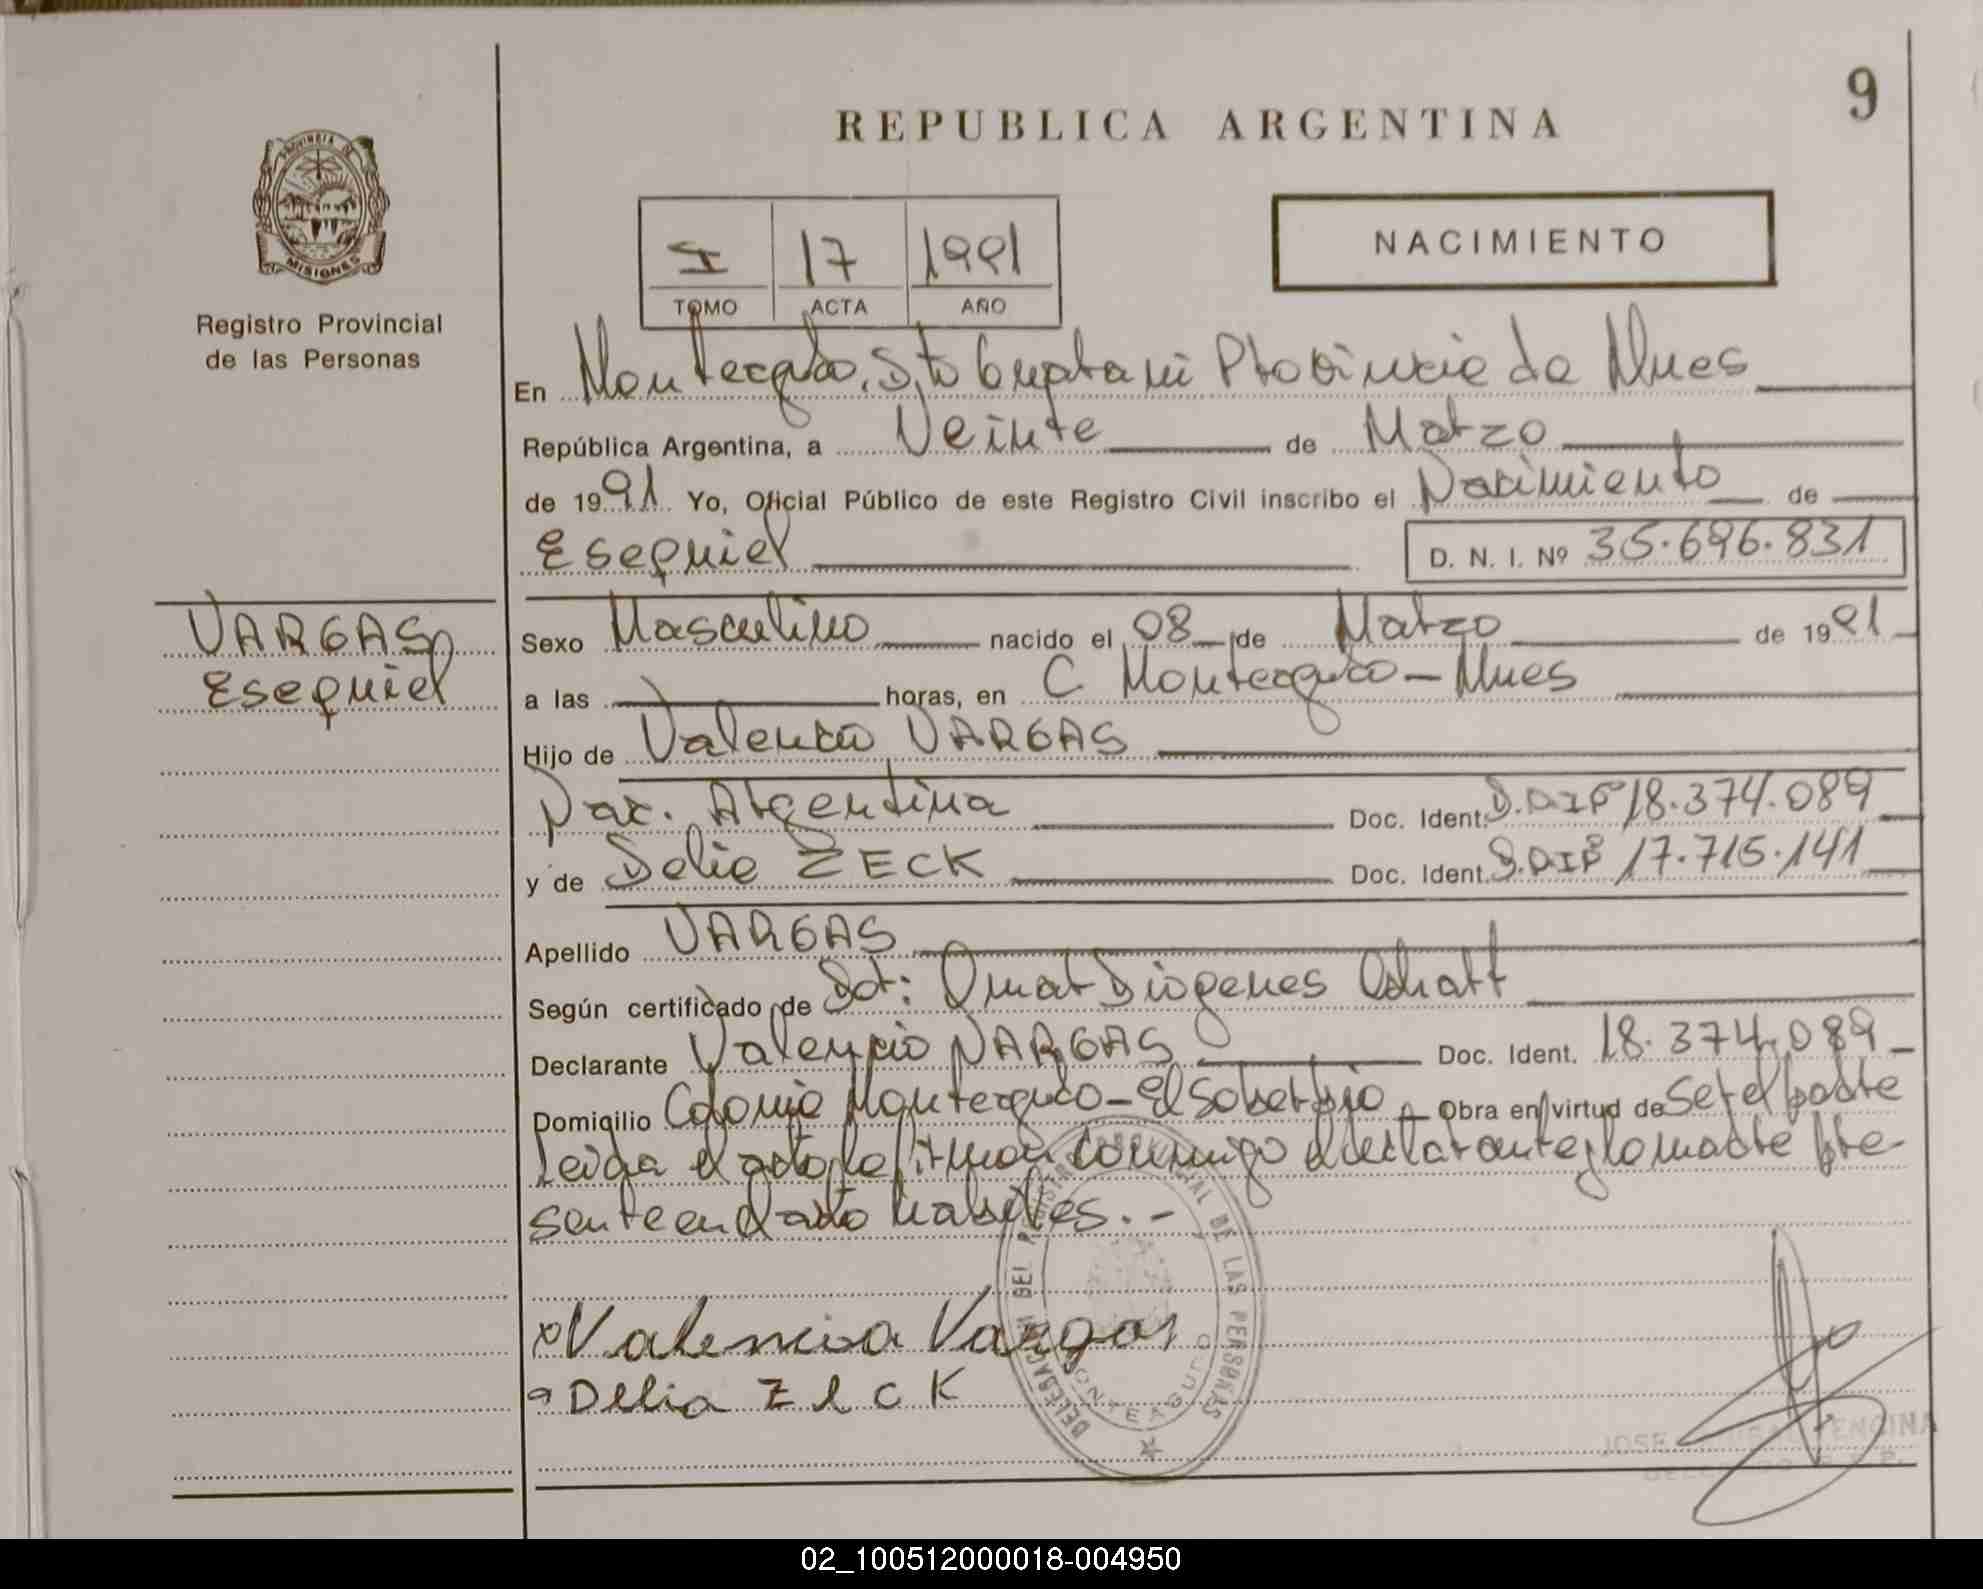 9
REPUBLICA ARGENTINA
PROVINCIA DE
MISIONES
Registro Provincial
de las Personas
I 17 1991
TOMO ACTA AÑO
NACIMIENTO
En Monteagudo, Dto Guarani Provincia de Mnes
República Argentina, a Veinte de Marzo
de 1991 Yo, Oficial Público de este Registro Civil inscribo el Nacimiento de
Esequiel D. N. I. Nº 35.696.831
VARGAS
Esequiel
Sexo Masculino nacido el 08 de Marzo de 1991
a las horas, en C Monteagudo - Mnes
Hijo de Valencio VARGAS
Nac. Argentina Doc. Ident. 18.374.089
y de Delia ZECK Doc. Ident. 17.715.141
Apellido VARGAS
Según certificado de Dr: Omar Diogenes
Declarante Valencio VARGAS Doc. Ident. 18.374.089
Domicilio Colonia Monteagudo - El Soberbio Obra en virtud de Ser el padre
Leida el acta la firman conmigo el declarante y la madre pre-
sente en el acto habiles. -
Valencio Vargas
Delia Zeck
DELEGACION DEL REGISTRO PROVINCIAL DE LAS PERSONAS
MONTEAGUDO
JOSE
02_100512000018-004950